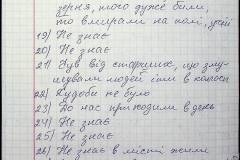 зерня, того дуже били,
то вмирали на полі, усій
19) Не знає
20) Не знає
21) Чув від старших, що злу-
щували людей іти в колгосп
22) Худоби не було
23) До нас приходили в день
24) Не знає
25) Не знає
26) Не знає в місті жили